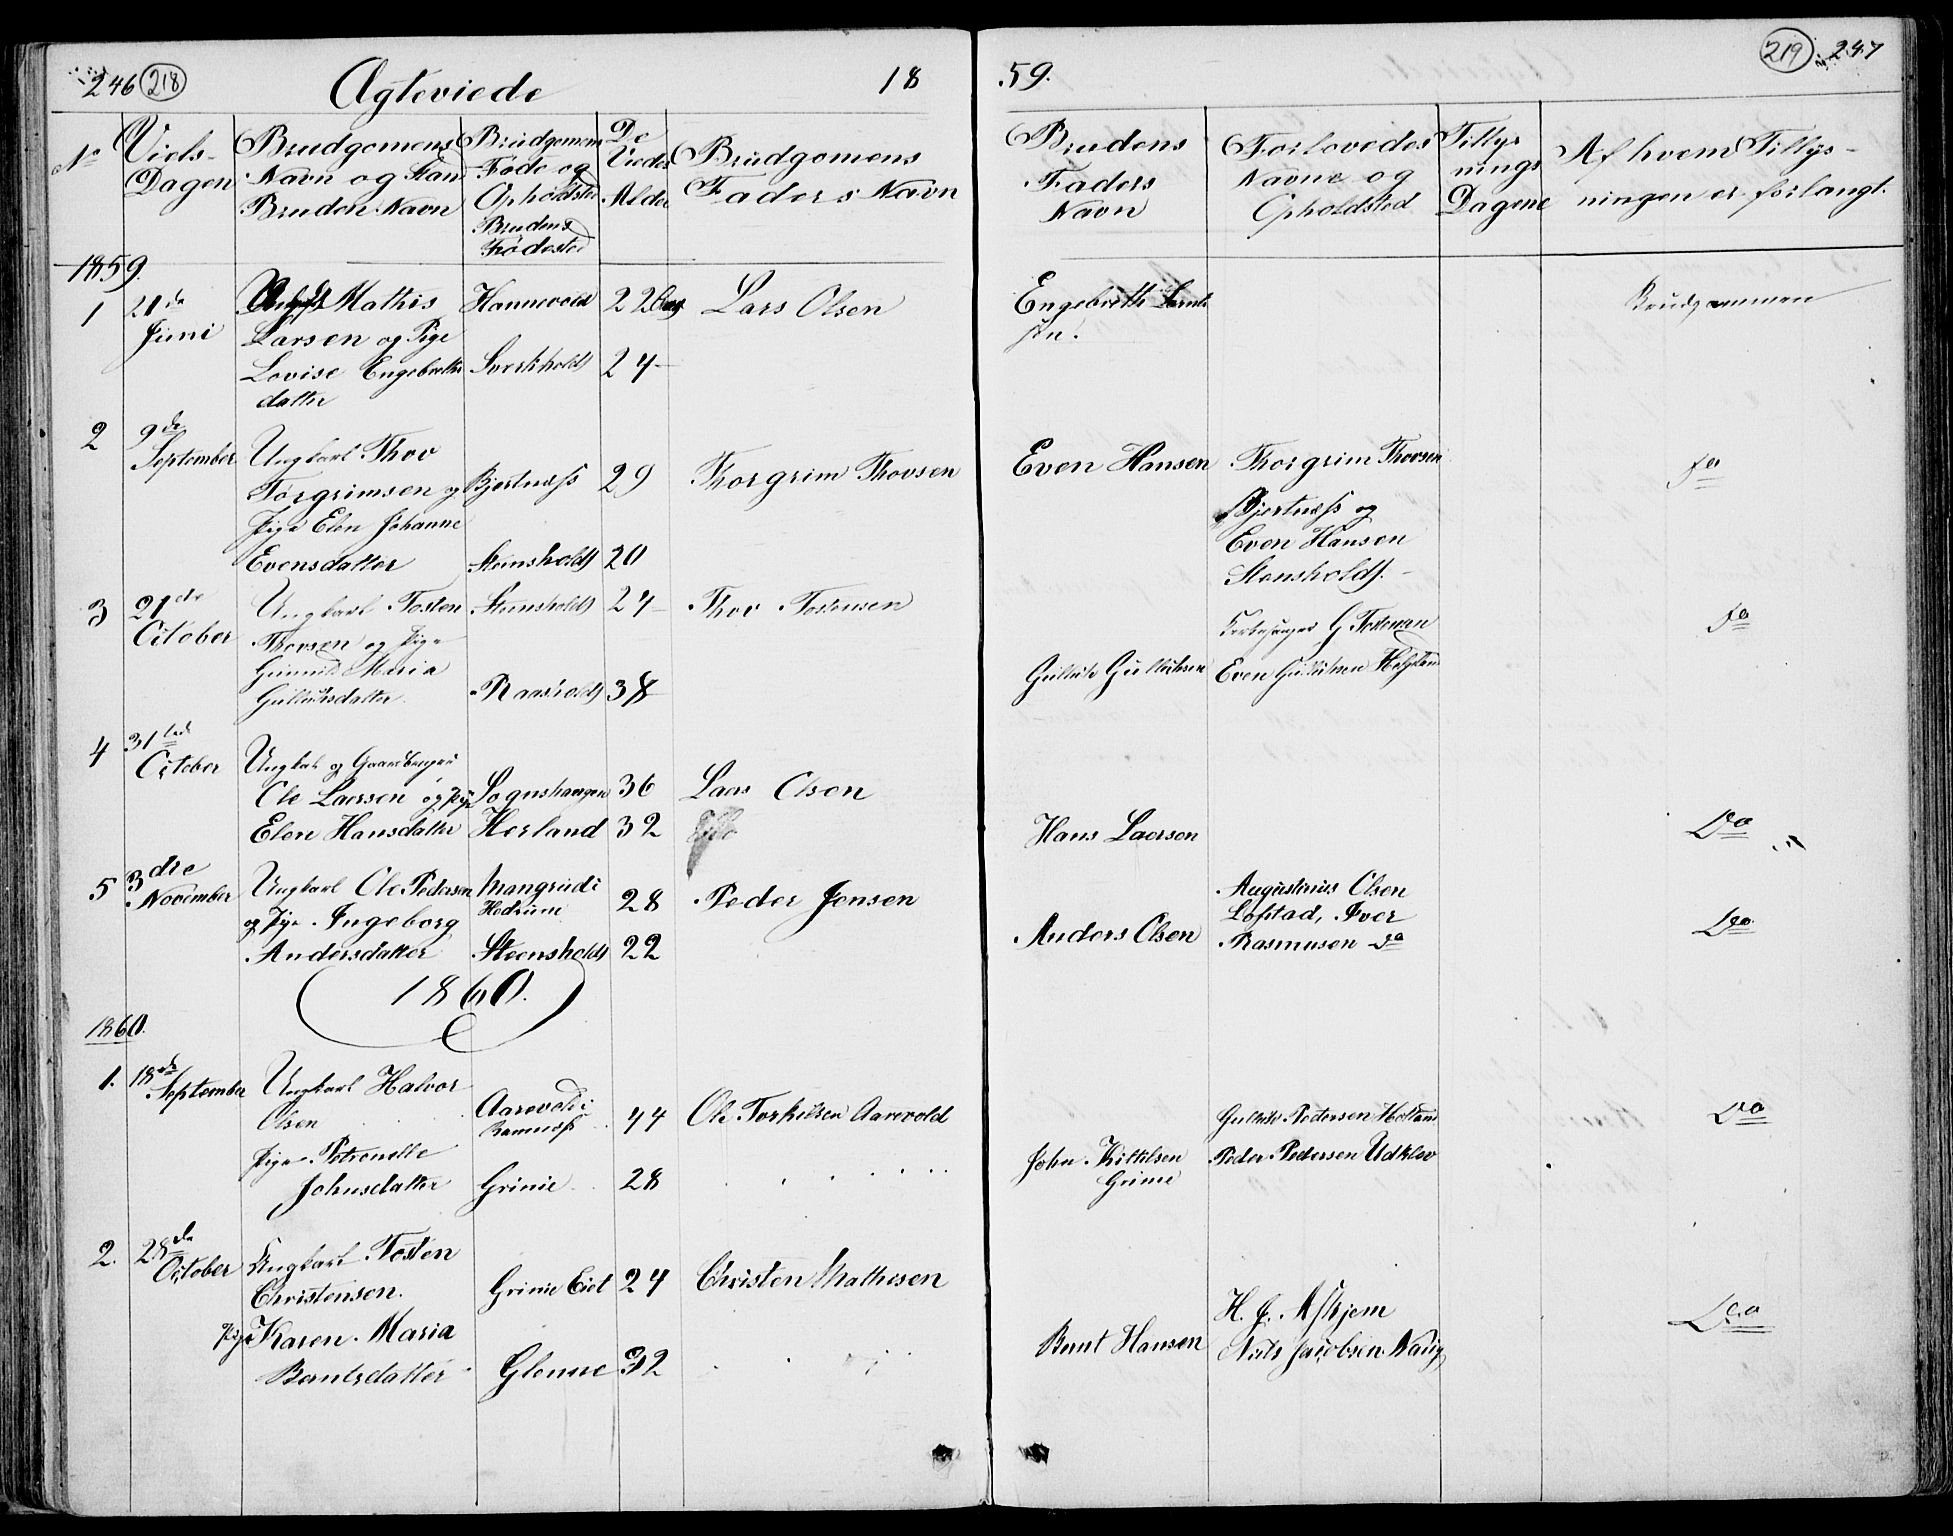 246 218 Agteviede 18
59. 219 247
No
Viels-
Dagen
Brudgomens
Navn og Stan
Bruden Navn
Brudgomens
Føde og
Opholdsted
Brudens
Fødested
De
Viedes
Alder
Brudgomens
Faders Navn
Brudens
Faders
Navn
Forlovedes
Navne og
Opholdsted
Tillys
nings
Dagene
Af hvem Tillys-
ningen er forlangt.
1859.
1 21de Juni
Mathis
Larsen og Pige
Lovise Engebrets
datter
Hannevold
Sverkholdt
22
24
Lars Olsen
Engebreth
sen.
Brudgommen
2 9de September
Ungkarl Thov
Torgrimsen og
Pige Elen Johanne
Evensdatter
Bjertnæss
Steinsholdt
29
20
Thorgrim Thovsen
Even Hansen
Thorgrim Thovsen
Bjertnæss og
Even Hansen
Stensholdt.
do
3 21de October
Ungkarl Tosten
Thovsen og Pige
Gunnild Maria
Gulliksdatter
Steinsholdt
Ransholdt
24
38
Thov Tostensen
Gullik Gulliksen
Kirkesanger G Tostensen
Even Gulliksen
do
4 31te October
Ungkarl og Gaardbruger
Ole Laersen og Pige
Elen Hansdatter
Sognshaugen
Herland
36
32
Laers Olsen
Hans Laersen
Do
5 3dre November
Ungkarl Ole Pedersen
og Pige Ingeborg
Andersdatter
Mangrud i
Hedrum
Steensholdt
28
22
Peder Jensen
Anders Olsen
Augustinus Olsen
Lofstad, Iver
Rasmusen do
Do
1860.
1860.
1. 18de September
Ungkarl Halvor
Olsen
Pige Petronelle
Johnsdatter
Aarevold i
Ramnæss
Grime
44
28
Ole Torkilsen Aarevold
John Kittilsen
Grime
Gullik Pedersen Holtan
Peder Pedersen Udklev
Do
2. 28de October
Ungkarl Tosten
Christensen.
Pige Karen Maria
Berntsdatter
Grime Eiet
Glenne
24
32
Christen Mathisen
Bernt Hansen
H. J. Askjem
Niels Jacobsen Naug
Do